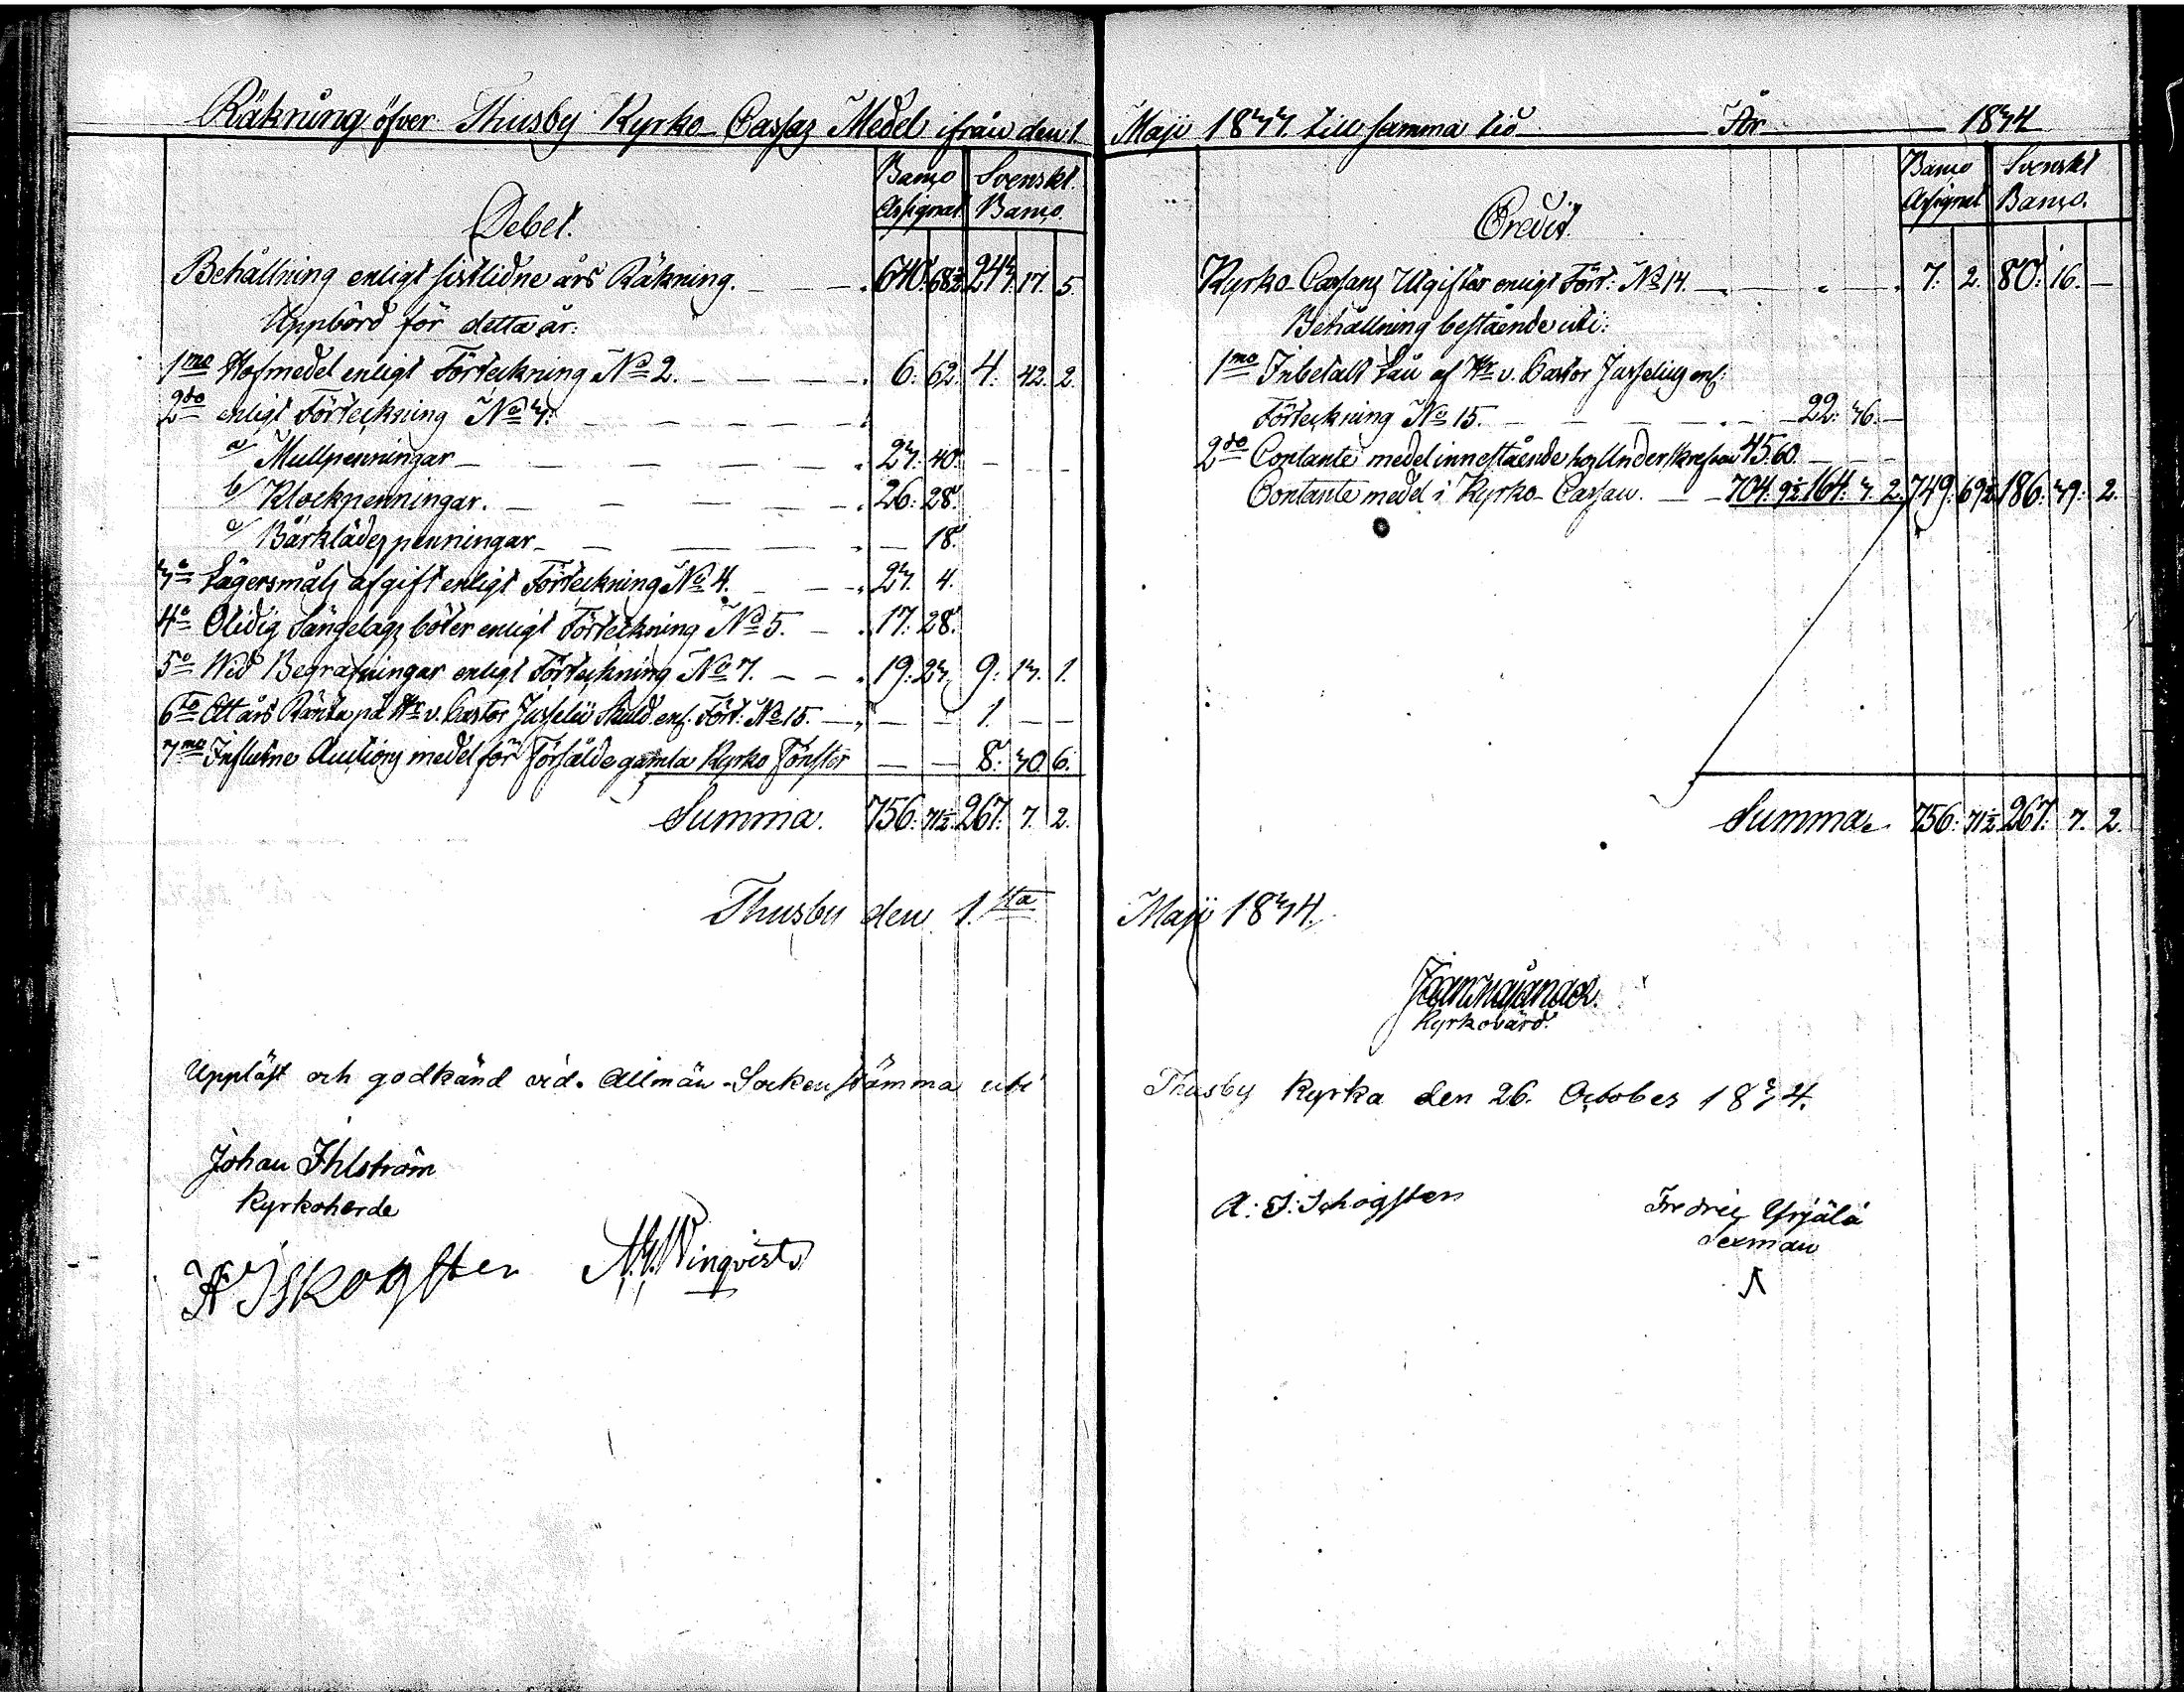 Räkning öfver Thusby Kyrko Cassas Medel ifrån den 1.
Banco Assignat Svenskt Banco.
Debet.
Behållning enligt sistlidne års Räkning. 640. 68½. 243. 17. 5.
Uppbörd för detta år:
1mo Hofmedel enligt Förteckning No 2. 6. 62. 4. 42. 2.
2do enligt Förteckning No 3:
a/ Mullpenningar 23. 40.
b/ Klockpenningar. 26. 28.
c/ Bårklädespenningar 18.
3o Lägersmåls afgift enligt Förteckning No 4. 23. 4.
4o Olidig Sängelags böter enligt Förteckning No 5. 17. 28.
5o Wid Begrafningar enligt Förteckning No 7. 19. 23. 9. 13. 1.
6to Ett års Ränta på Hr v. Pastor Jusselii Skuld enl. Fört: No 15. 1.
7mo Influtne Auctions medel för försålde gamla Kyrko Fönster 8. 30. 6.
Summa. 756. 71½. 267. 7. 2.
Thusby den 1.sta
Uppläst och godkänd vid Allmän Sockenstämma uti
Johan Ihlström
Kyrkoherde
Skogster
Winqvist
Maji 1833. till samma tid För 1834
Banco Assignat Svenskt Banco.
Credit.
Kyrko Cassans Utgifter enligt Fört: No 14. 7. 2. 80. 16.
Behållning bestående uti:
1mo Inbetalt Lån af Hr v. Pastor Jusselius enl:
Förteckning No 15. 22. 36.
2do Contante medel innestående hos Underskrefven 45.60.
Contante medel i Kyrko Cassan. 704. 9½ 164. 3. 2. 749. 69½. 186. 39. 2.
Summa. 756. 71½ 267. 7. 2.
Maji 1834.
Kyrkovärd.
Thusby Kyrka den 26. October 1834.
A: J: Schogsten
Fredric Yrjälä
Sexman